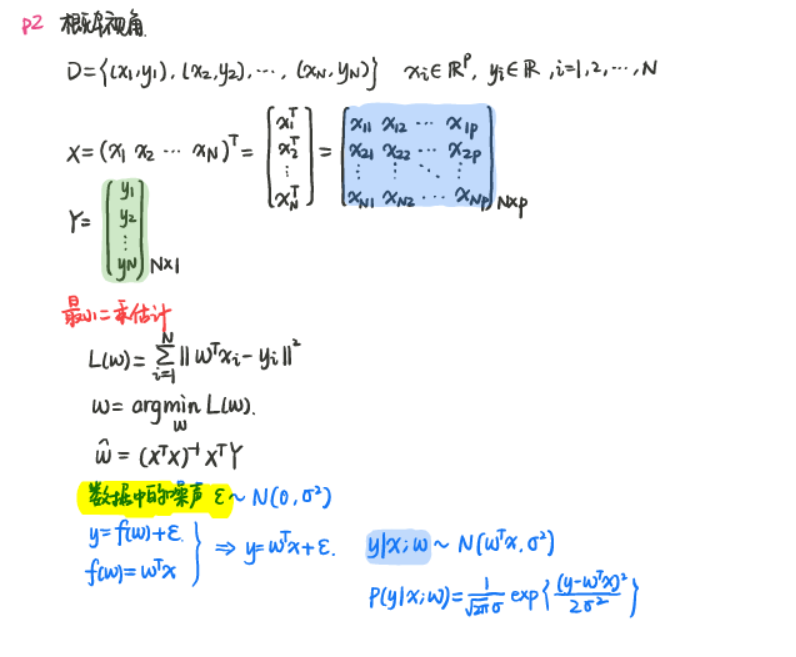 P2 概率视角.
D={(x₁,y₁), (x₂,y₂), ⋯, (x_N, y_N)} xᵢ∈ℝᴾ, yᵢ∈ℝ, i=1,2,⋯,N
X=(x₁ x₂ ⋯ x_N)ᵀ= [x₁ᵀ; x₂ᵀ; ⋮; x_Nᵀ] = [x₁₁ x₁₂ ⋯ x₁p; x₂₁ x₂₂ ⋯ x₂p; ⋮ ⋮ ⋱ ⋮; x_N1 x_N2 ⋯ x_Np] N×p
Y= (y₁; y₂; ⋮; y_N) N×1
最小二乘估计
L(w)= ∑_{i=1}^{N} ‖wᵀxᵢ-yᵢ‖²
w= argmin_w L(w).
ŵ = (XᵀX)⁻¹XᵀY
数据中的噪声 ε ~ N(0,σ²)
y=f(w)+ε.
f(w)=wᵀx } ⇒ y=wᵀx+ε. y|x;w ~ N(wᵀx,σ²)
P(y|x;w)= 1/(√2π σ) exp{(y-wᵀx)²/2σ²}